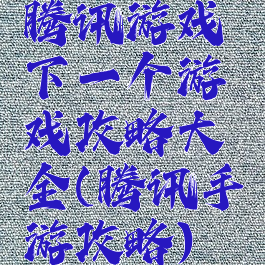 腾讯游戏
下一个游
戏攻略大
全(腾讯手
游攻略)